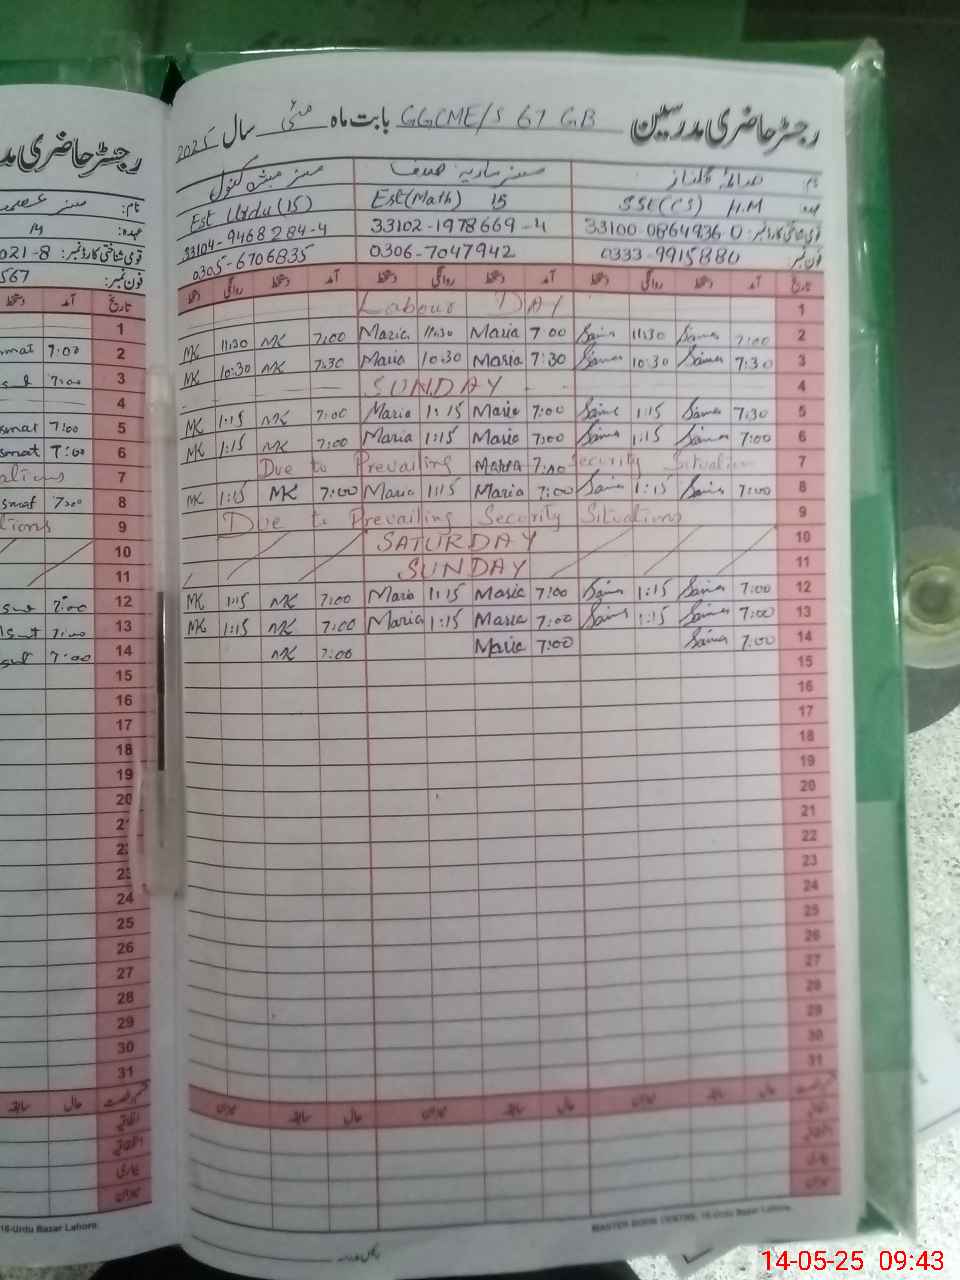 رجسٹر حاضری مدرسین GGCME/S 67 GB بابت ماہ مئی سال 2025
نام:
عہدہ: SSE(CS) H.M Est(Math) 15 Est Urdu (15)
قومی شناختی کارڈ نمبر: 33102-1978669-4 33104-9468284-4
فون نمبر: 0333-9915880 0306-7047942 0305-6706835
تاریخ آمد دستخط روانگی دستخط آمد دستخط روانگی دستخط آمد دستخط روانگی دستخط
1 Labour DAY
2 7:00 Saima 11:30 Saima 7:00 Maria 11:30 Maria 7:00 MK 11:30 MK
3 7:30 Saima 10:30 Saima 7:30 Maria 10:30 Maria 7:30 MK 10:30 MK
4 SUNDAY
5 7:30 Saima 1:15 Saima 7:00 Maria 1:15 Maria 7:00 MK 1:15 MK
6 7:00 Saima 1:15 Saima 7:00 Maria 1:15 Maria 7:00 MK 1:15 MK
7 Due to Prevailing Maria 7:00 Security Situation
8 7:00 Saima 1:15 Saima 7:00 Maria 1:15 Maria 7:00 MK 1:15 MK
9 Due to Prevailing Security Situations
10 SATURDAY
11 SUNDAY
12 7:00 Saima 1:15 Saima 7:00 Maria 1:15 Maria 7:00 MK 1:15 MK
13 7:00 Saima 1:15 Saima 7:00 Maria 1:15 Maria 7:00 MK 1:15 MK
14 7:00 Saima 7:00 Maria 7:00 MK
15
16
17
18
19
20
21
22
23
24
25
26
27
28
29
30
31
MASTER BOOK CENTRE, 16-Urdu Bazar Lahore.
رجسٹر حاضری مد
نام:
عہدہ: 14
قومی شناختی کارڈ نمبر: 021-8
فون نمبر: 567
تاریخ آمد دستخط
1
2 7:00 smat
3 7:00
4
5 7:00 smat
6 7:00 smat
7 ations
8 7:00 smat
9 tions
10
11
12 7:00
13 7:00
14 7:00
15
16
17
18
19
20
24
25
26
27
28
29
30
31
16-Urdu Bazar Lahore.
14-05-25 09:43